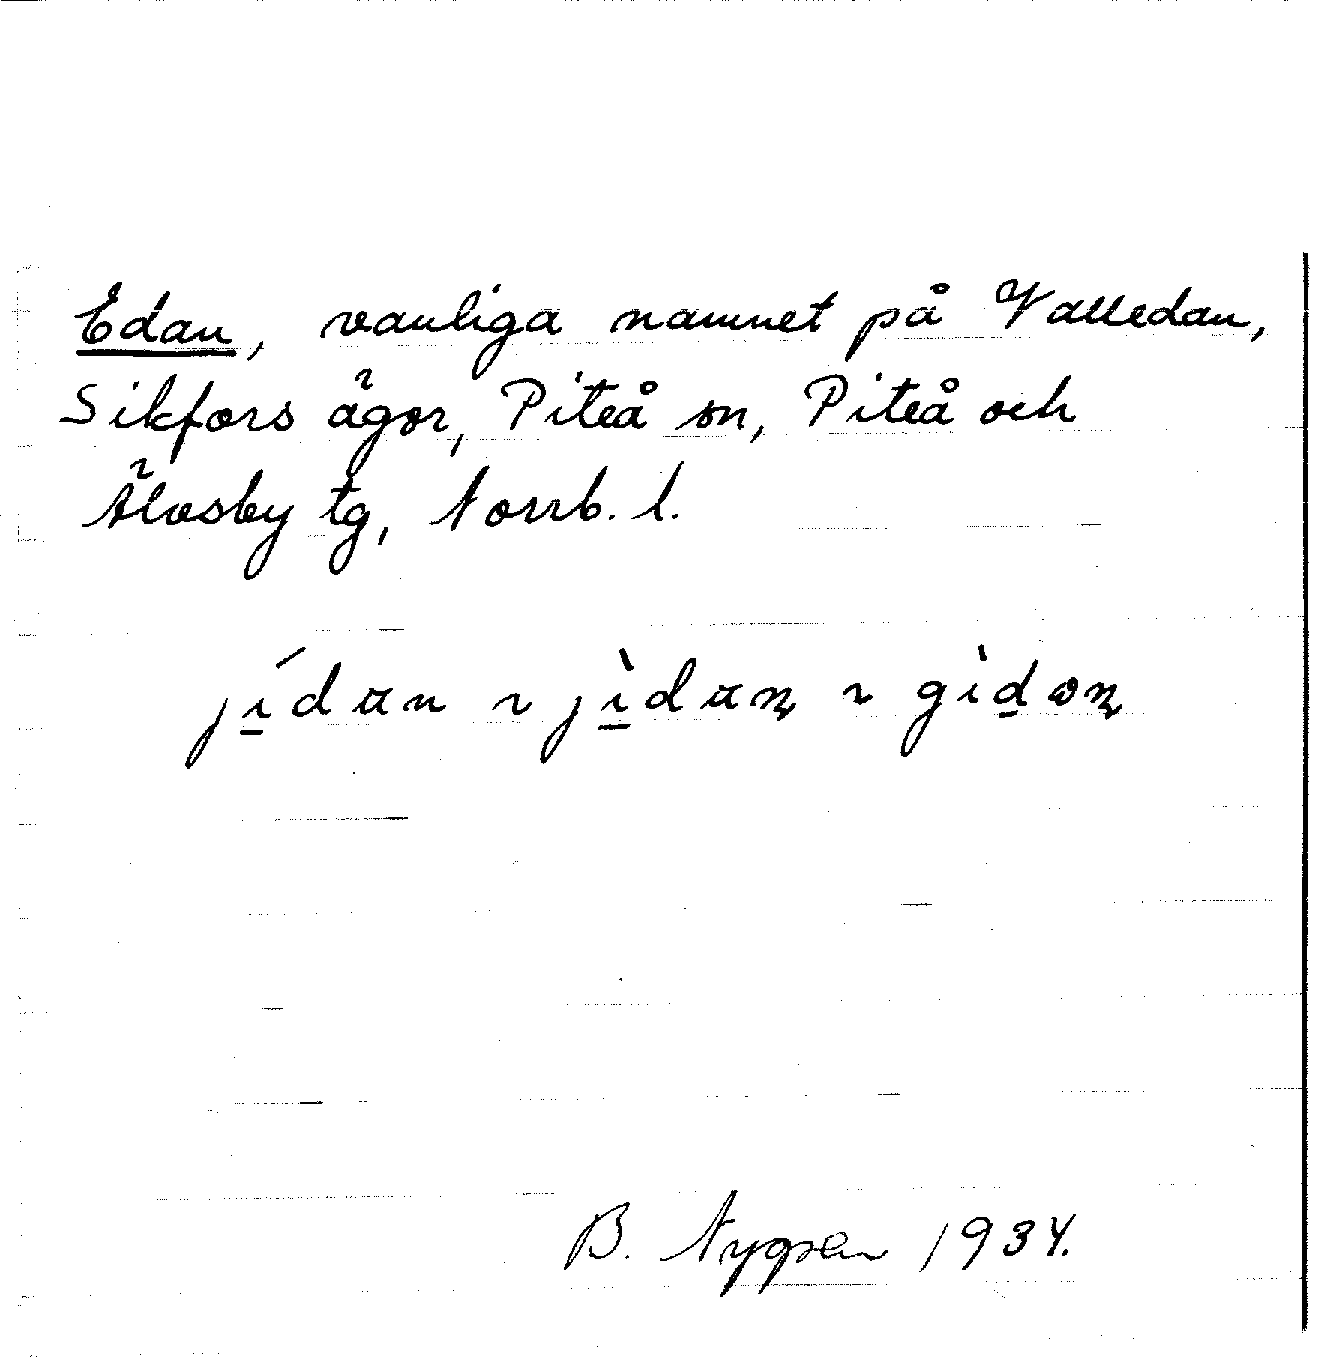 Edan, vanliga namnet på Valledan,
Sikfors ägor, Piteå sn, Piteå och
Älvsby tg, Norrb. l.
jídan ~ jìdan ~ gìdən
B. Nygren 1934.